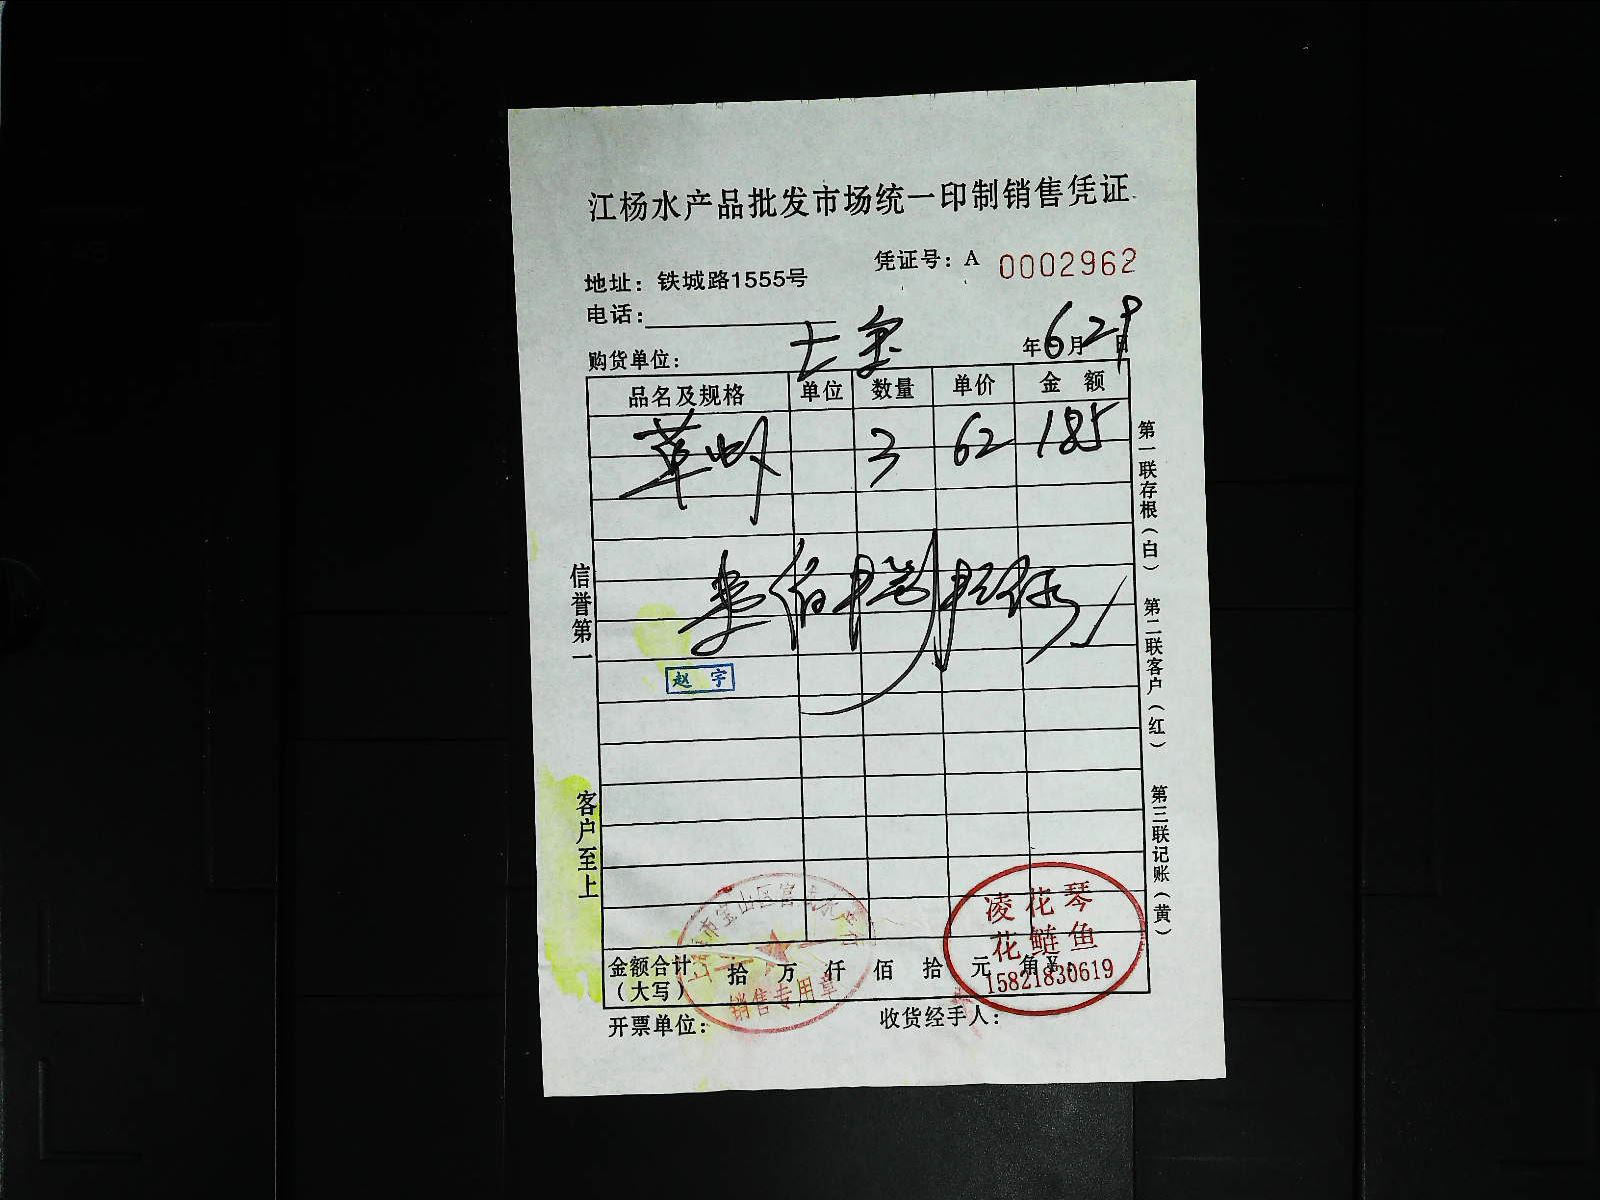 江杨水产品批发市场统一印制销售凭证
凭证号：A 0002962
地址：铁城路1555号
电话：
购货单位：
年6月29日
品名及规格 单位 数量 单价 金 额
草虾 3 62 185
赵 宇
金额合计（大写） 拾 万 仟 佰 拾 元 角¥：
开票单位： 收货经手人：
信誉第一
客户至上
第一联存根（白） 第二联客户（红） 第三联记账（黄）
销售专用章
凌花琴
花鲢鱼
15821830619